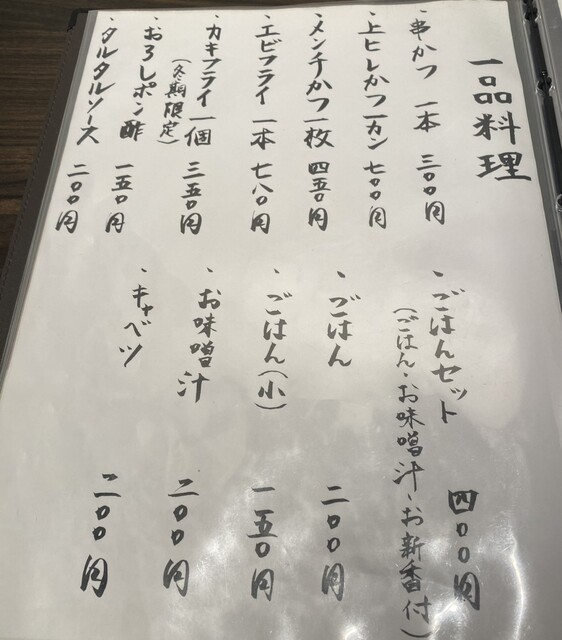 一品料理
・串かつ 一本 三〇〇円
・上ヒレかつ一カン 七〇〇円
・メンチかつ一枚 四五〇円
・エビフライ一本 七八〇円
・カキフライ一個 三五〇円
(冬期限定)
・おろしポン酢 一五〇円
・タルタルソース 二〇〇円
・ごはんセット 四〇〇円
(ごはん・お味噌汁・お新香付)
・ごはん 二〇〇円
・ごはん(小) 一五〇円
・お味噌汁 二〇〇円
・キャベツ 二〇〇円